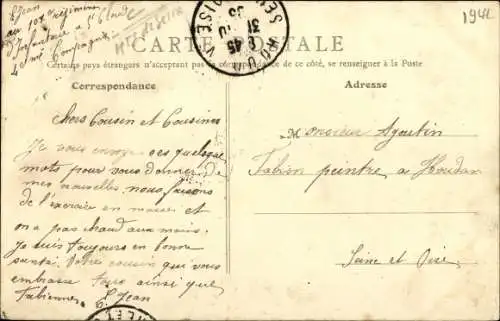 Jean
au 107e régiment
d'Infanterie à St Cloud
4 me Compagnie
1944
CARTE POSTALE
Certains pays étrangers n'acceptant pas la correspondance de ce côté, se renseigner à la Poste
Correspondance
Adresse
Chers Cousin et Cousines
Je vous envoye ces quelques
mots pour vous donner de
mes nouvelles, nous faisons
de l'exercice en masse et
on a pas chaud aux mains.
Je suis toujours en bonne
santé. Votre cousin qui vous
embrasse tous ainsi que
Fabienne Jean
Monsieur Agoutin
Fabien peintre a Houdan
Seine et Oise